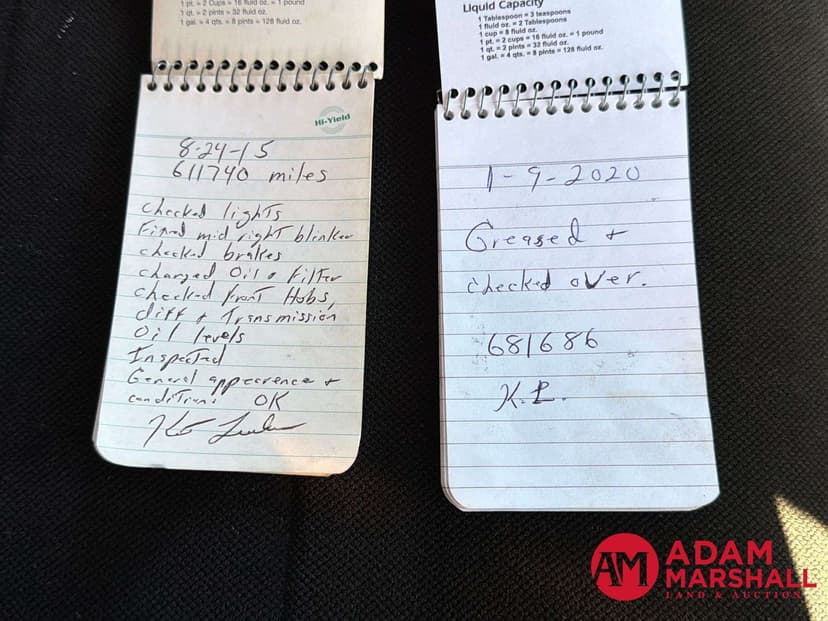 1 pt. = 2 Cups = 16 fluid oz. = 1 pound
1 qt. = 2 pints = 32 fluid oz.
1 gal. = 4 qts. = 8 pints = 128 fluid oz.
Hi-Yield
8-24-15
611740 miles
checked lights
Fixed mid right blinker
checked brakes
changed Oil & Filter
checked front Hobs,
diff & Transmission
Oil levels
Inspected
General appearence +
conditions OK
Liquid Capacity
1 Tablespoon = 3 teaspoons
1 fluid oz. = 2 Tablespoons
1 cup = 8 fluid oz.
1 pt. = 2 cups = 16 fluid oz. = 1 pound
1 qt. = 2 pints = 32 fluid oz.
1 gal. = 4 qts. = 8 pints = 128 fluid oz.
1-9-2020
Greased +
checked over.
681686
K.L.
AM ADAM
MARSHALL
LAND & AUCTION